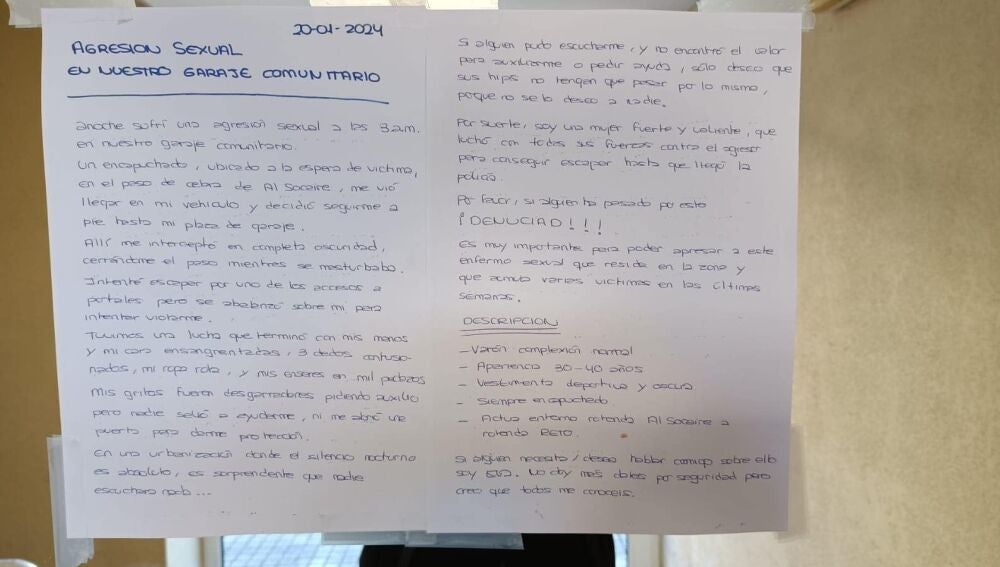 20-01-2024
AGRESION SEXUAL
EN NUESTRO GARAJE COMUNITARIO
anoche sufrí una agresión sexual a las 3 a.m.
en nuestro garaje comunitario.
Un encapuchado, ubicado a la espera de víctima,
en el paso de cebra de Al Socaire, me vió
llegar en mi vehículo y decidió seguirme a
pie hasta mi plaza de garaje.
Allí me interceptó en completa oscuridad,
cerrándome el paso mientras se masturbaba.
Intenté escapar por uno de los accesos a
portales pero se abalanzó sobre mi para
intentar violarme.
Tuvimos una lucha que terminó con mis manos
y mi cara ensangrentadas, 3 dedos contusio-
nados, mi ropa rota, y mis enseres en mil pedazos
Mis gritos fueron desgarradores pidiendo auxilio
pero nadie salió a ayudarme, ni me abrió una
puerta para darme protección.
En una urbanización donde el silencio nocturno
es absoluto, es sorprendente que nadie
escuchara nada...
Si alguien pudo escucharme, y no encontró el valor
para auxiliarme o pedir ayuda, sólo deseo que
sus hijas no tengan que pasar por lo mismo,
porque no se lo deseo a nadie.
Por suerte, soy una mujer fuerte y valiente, que
luchó con todas sus fuerzas contra el agresor
para conseguir escapar hasta que llegó la
policía.
Por favor, si alguien ha pasado por esto
¡DENUCIAD!!!
Es muy importante para poder apresar a este
enfermo sexual que reside en la zona y
que acumula varias víctimas en las últimas
semanas.
DESCRIPCION
- Varón complexión normal
- Apariencia 30-40 años
- Vestimenta deportiva y oscura
- Siempre encapuchado
- Actua entorno rotonda Al Socaire a
rotonda RETO.
Si alguien necesita/desea hablar conmigo sobre ello
soy . No doy más datos por seguridad pero
creo que todos me conoceis.